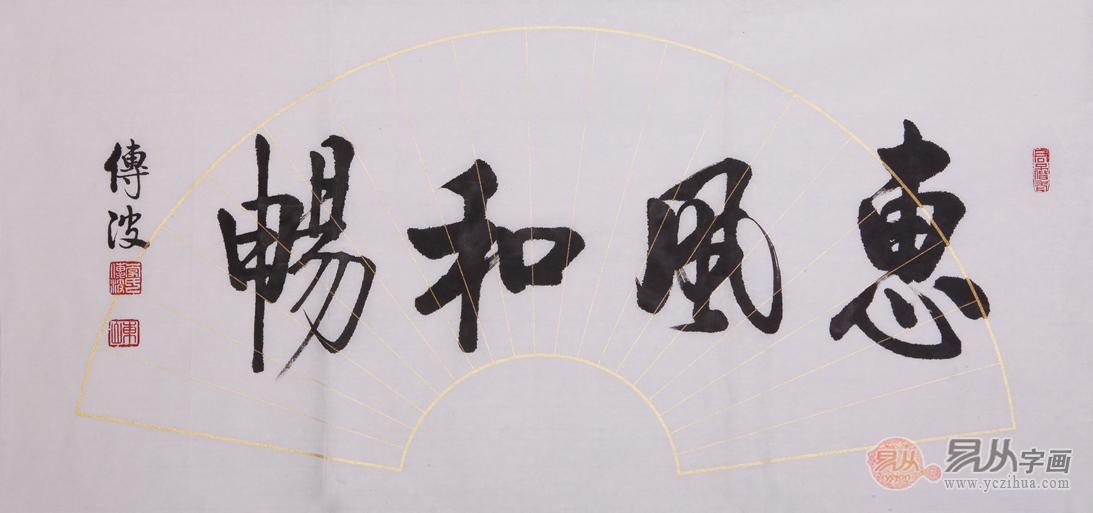 惠風和暢
傳波
易从
易从字画
www.yczihua.com